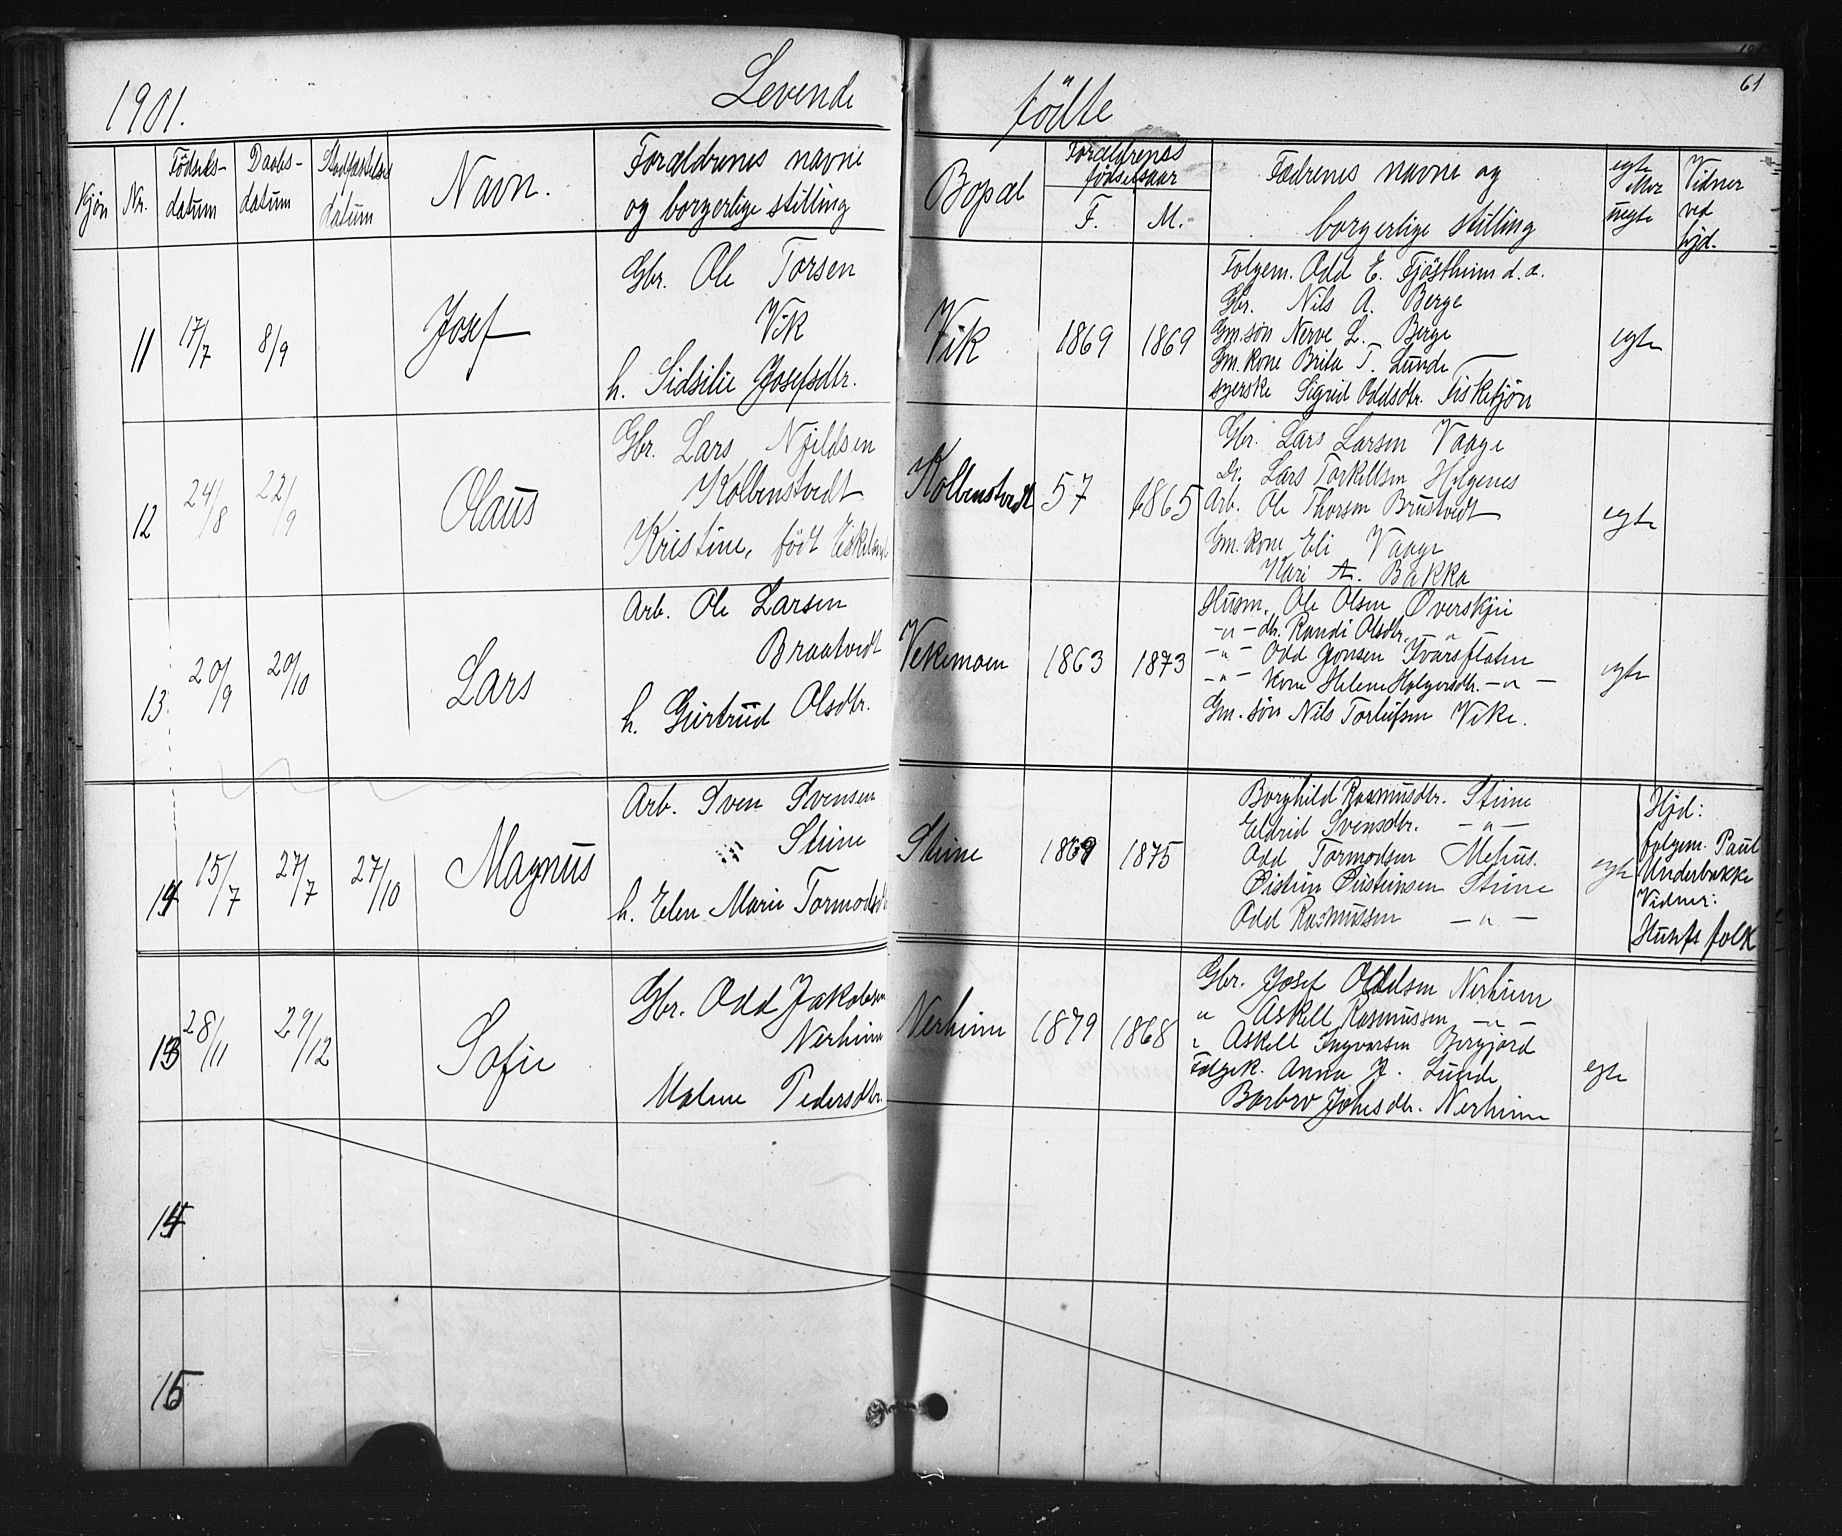 61
1901.
Levende
födte
Kjön
Nr.
Födsels-
datum
Daabs-
datum
Stadfæstelses
datum
Navn.
Forældrenes navne
og borgerlige stilling
Bopæl
Forældrenes
födselsaar
F.
M.
Fadrenes navne og
borgerlige stilling
egte
eller
uegte
Vidner
ved
hjd.
11
17/7
8/9
Josef
Gbr. Ole Torsen
Vik
h. Sidsilie Josefsdtr.
Vik
1869
1869
Folgem. Odd E. Fjöstheim d. a.
Gbr. Nils A. Berge
Gm. sön Nerve L. Berge
Gm. kone Brita T. Lunde
syerske Sigrid Oddsdtr. Fisketjön
egte
12
24/8
22/9
Olaus
Gbr. Lars Njeldsen
Kolbenstvedt
Kristine, födt Eskeland
Kolbenstvedt
57
1865
Gbr. Lars Larsen Vaage
Do. Lars Torkillsen Helgenes
Arb. Ole Thorsen Brustvedt
Gm. kone Eli Vaage
Kari A. Bakka
egte
13
20/9
20/10
Lars
Arb. Ole Larsen
Braatvedt
h. Gurtrud Olsdtr.
Vekemoen
1863
1873
Husm. Ole Olsen Overskjei
-"- dtr. Randi Olsdtr. "
-"- Odd Jonsen Ivarsflaten
-"- kone Helene Holgersdtr. -"-
Gm. sön Nils Torleifsen Vike.
egte
14
15/7
27/7
27/10
Magnus
Arb. Sven Svensen
Stime
h. Elen Marie Tormodsd
Stime
1869
1875
Borghild Rasmusdtr. Stime
Eldrid Svensdtr. -"-
Odd Tormodsen Mehus.
Öistein Öisteinsen Stime
Odd Rasmussen -"-
egte
Hjd:
folgem. Paul
Underbakke
Vidner:
Husets folk
13
28/11
29/12
Sofie
Gbr. Odd Jakobsen
Nerheim
Malene Pedersdtr.
Nerheim
1879
1868
Gbr. Josef Oddsen Nerheim
" Askell Rasmussen -"-
" Askell Ingvarsen Bergjord
Folgek. Anna J. Lunde
Barbro Johsdtr. Nerheim
egte
15